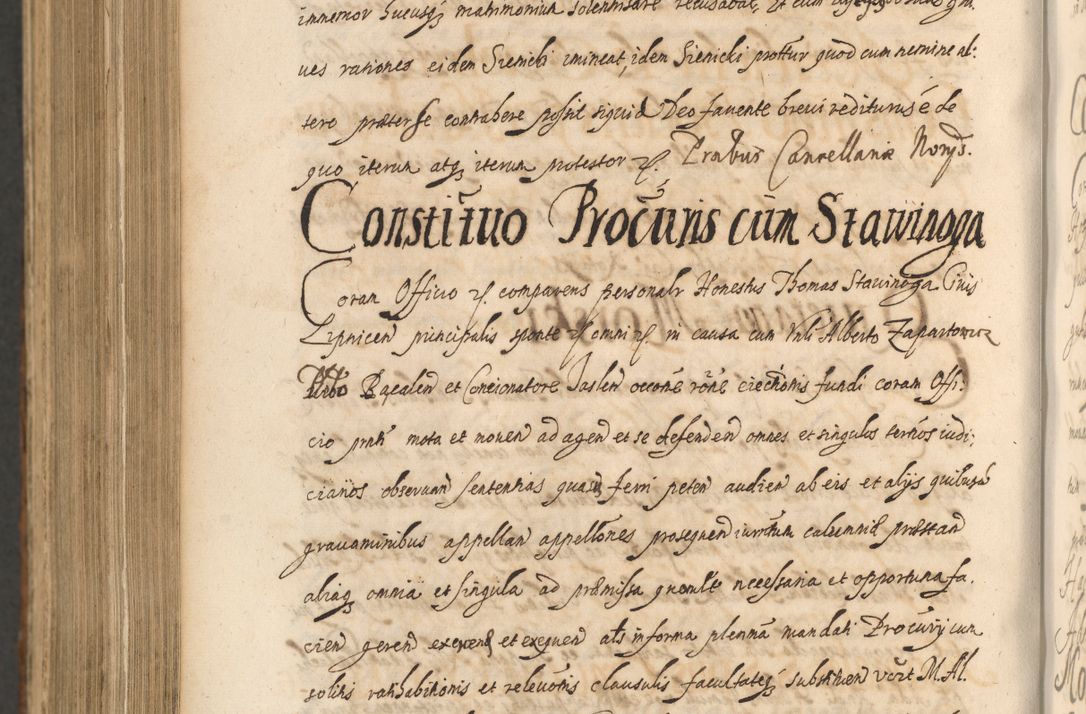 immemor hucusq matrimonium solennisare recusabat, et cum
ues rationes eidem Sienicki imineat, idem Sienicki prottur quod cum nemine al:
tero præter se contrahere possit siquid Deo fauente breui rediturus é de
quo iterum atq iterum protestor etc. Cancellariæ Norys.
Constituo Procuris cum Stawinoga
Coram Officio etc. comparens personalr Honestus Thomas Stawinoga Ciuis
Lipnicen principalis sponte etc omni etc. in causa cum Vnli Alberto Zapartowicz
Bacalen et Concionatore Jaslen occõne rõne eiectionis fundi coram Offi.
cio pnti mota et mouen ad agen et se defenden omnes et singulos termos iudi:
ciarios obseruan sententias quasuis ferri peten audien ab eis et alijs quibusuis
grauaminibus appellan appellões prosequen iurtum calumniæ præstan
aliaq omnia et singula ad præmissa quomlt necessaria et opportuna fa.
cien geren exercen et exequen als in forma plenina mandati Procurij cum
solitis ratihabitionis et releuonis clausulis facultateq substituen vort M. Al.